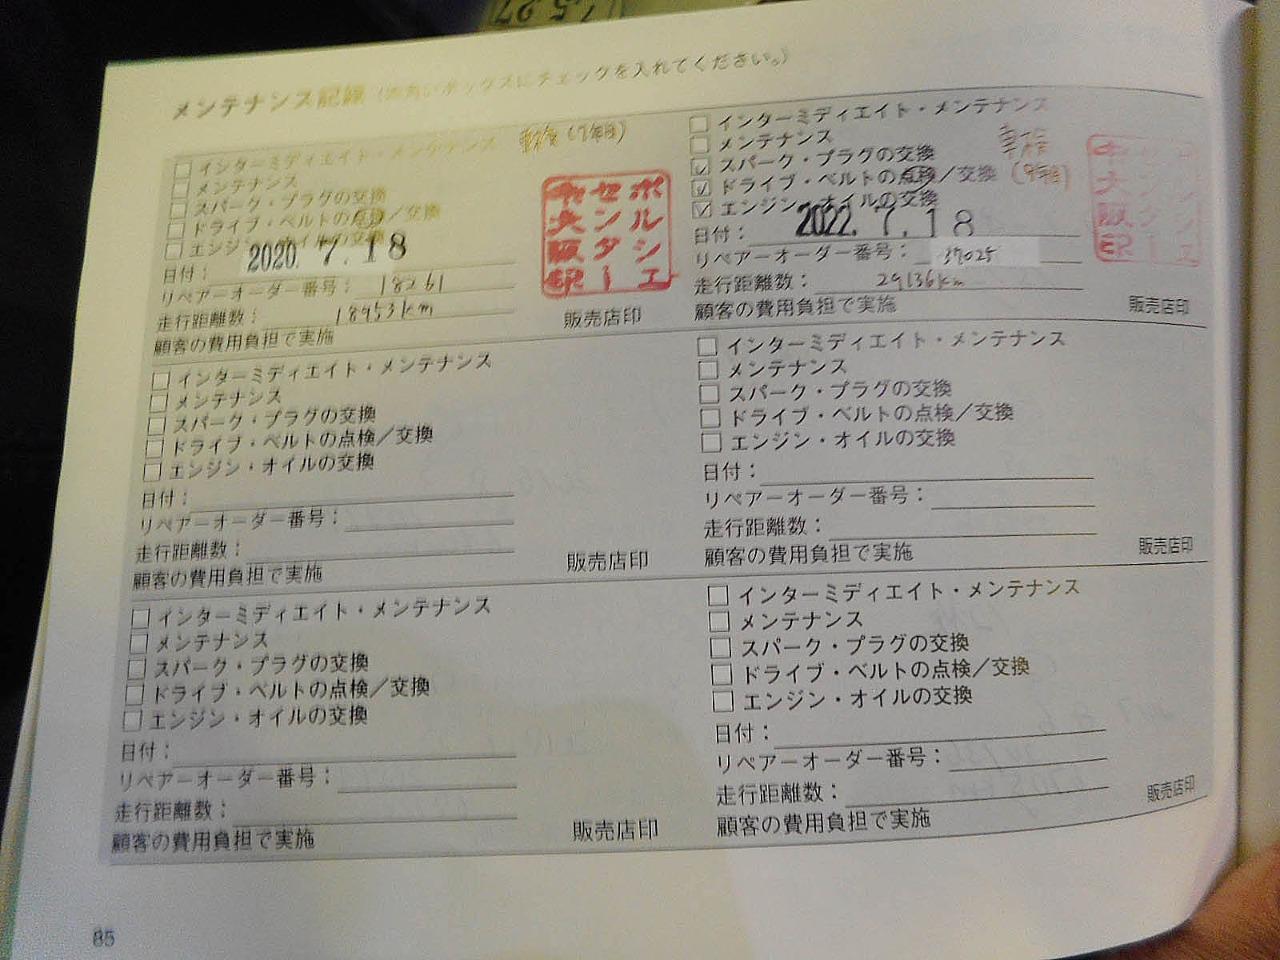 メンテナンス記録 (四角いボックスにチェックを入れてください。)
インターミディエイト・メンテナンス 車検(7年目)
メンテナンス
スパーク・プラグの交換
ドライブ・ベルトの点検/交換
エンジン・オイルの交換
日付: 2020. 7. 18
リペアーオーダー番号: 18261
走行距離数: 18953km
顧客の費用負担で実施
販売店印
ポルシェ
センター
北大阪印
インターミディエイト・メンテナンス
メンテナンス 車検
スパーク・プラグの交換
ドライブ・ベルトの点検/交換 (9年目)
エンジン・オイルの交換
日付: 2022. 7. 18
リペアーオーダー番号: 37025
走行距離数: 29136km
顧客の費用負担で実施
販売店印
インターミディエイト・メンテナンス
メンテナンス
スパーク・プラグの交換
ドライブ・ベルトの点検/交換
エンジン・オイルの交換
日付:
リペアーオーダー番号:
走行距離数:
顧客の費用負担で実施
販売店印
インターミディエイト・メンテナンス
メンテナンス
スパーク・プラグの交換
ドライブ・ベルトの点検/交換
エンジン・オイルの交換
日付:
リペアーオーダー番号:
走行距離数:
顧客の費用負担で実施
販売店印
インターミディエイト・メンテナンス
メンテナンス
スパーク・プラグの交換
ドライブ・ベルトの点検/交換
エンジン・オイルの交換
日付:
リペアーオーダー番号:
走行距離数:
顧客の費用負担で実施
販売店印
インターミディエイト・メンテナンス
メンテナンス
スパーク・プラグの交換
ドライブ・ベルトの点検/交換
エンジン・オイルの交換
日付:
リペアーオーダー番号:
走行距離数:
顧客の費用負担で実施
販売店印
85